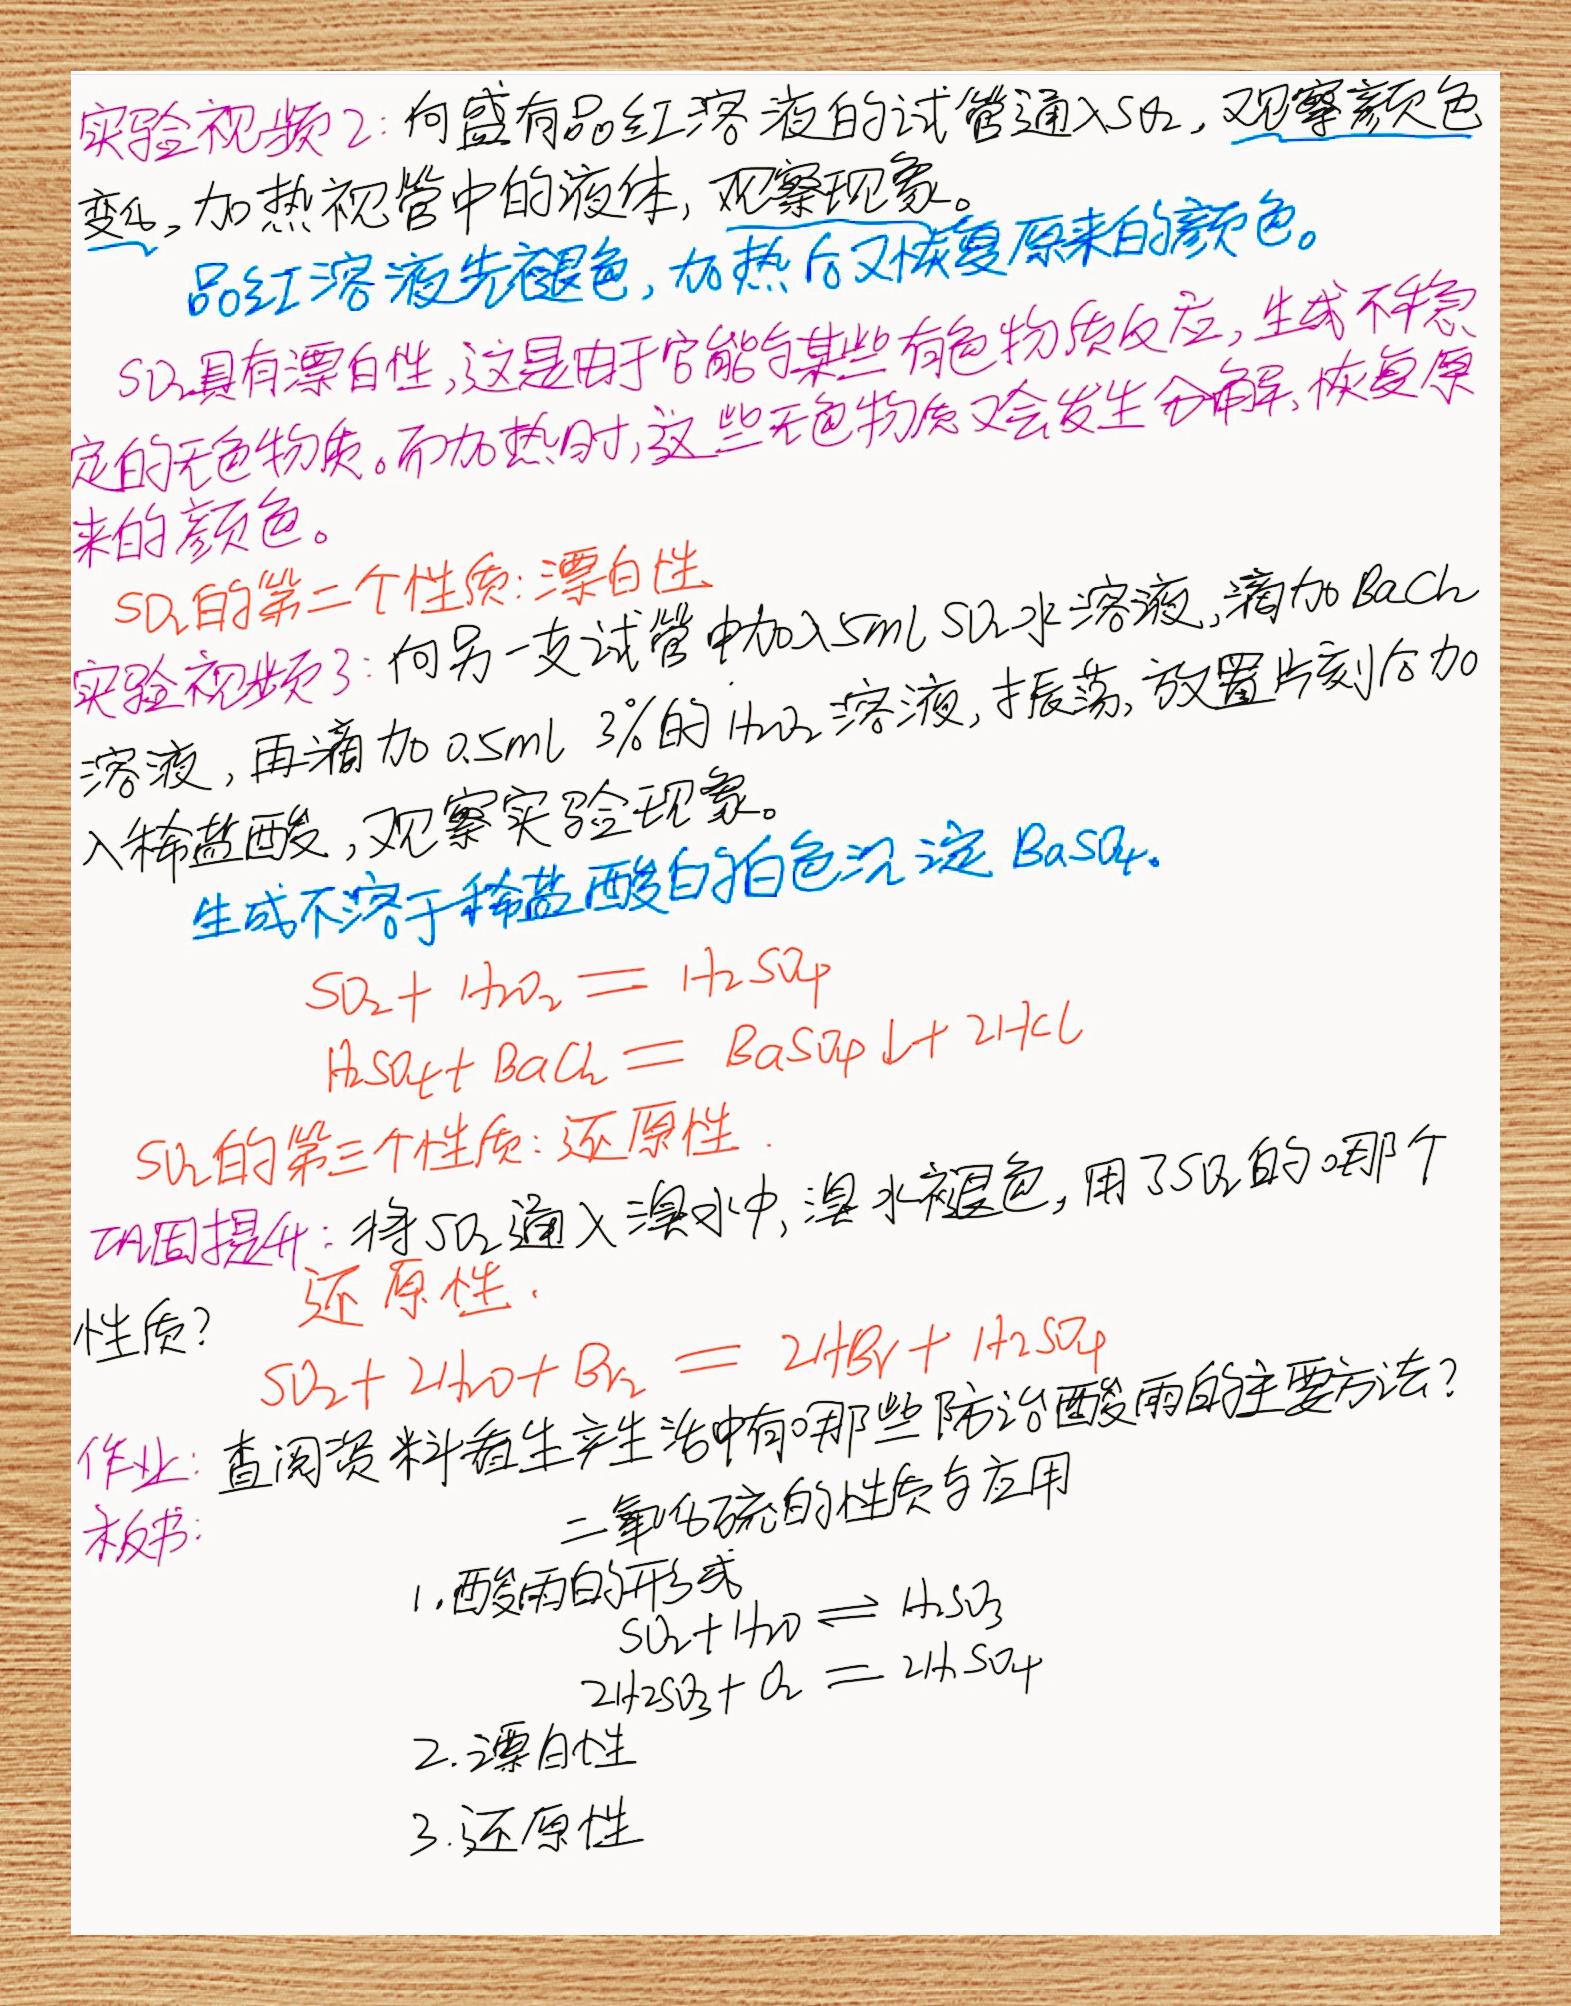 实验视频2:向盛有品红溶液的试管通入SO₂,观察颜色
变化,加热视管中的液体,观察现象。
品红溶液先褪色,加热后又恢复原来的颜色。
SO₂具有漂白性,这是由于它能与某些有色物质反应,生成不稳
定的无色物质。而加热时,这些无色物质又会发生分解,恢复原
来的颜色。
SO₂的第二个性质:漂白性
实验视频3:向另一支试管中加入5mL SO₂水溶液,滴加BaCl₂
溶液,再滴加0.5mL 3%的H₂O₂溶液,振荡,放置片刻后加
入稀盐酸,观察实验现象。
生成不溶于稀盐酸的白色沉淀BaSO₄。
SO₂+H₂O₂=H₂SO₄
H₂SO₄+BaCl₂=BaSO₄↓+2HCl
SO₂的第三个性质:还原性.
巩固提升:将SO₂通入溴水中,溴水褪色,用了SO₂的哪个
性质? 还原性.
SO₂+2H₂O+Br₂=2HBr+H₂SO₄
作业:查阅资料看生产生活中有哪些防治酸雨的主要方法?
板书: 二氧化硫的性质与应用
1.酸雨的形式
SO₂+H₂O⇌H₂SO₃
2H₂SO₃+O₂=2H₂SO₄
2.漂白性
3.还原性